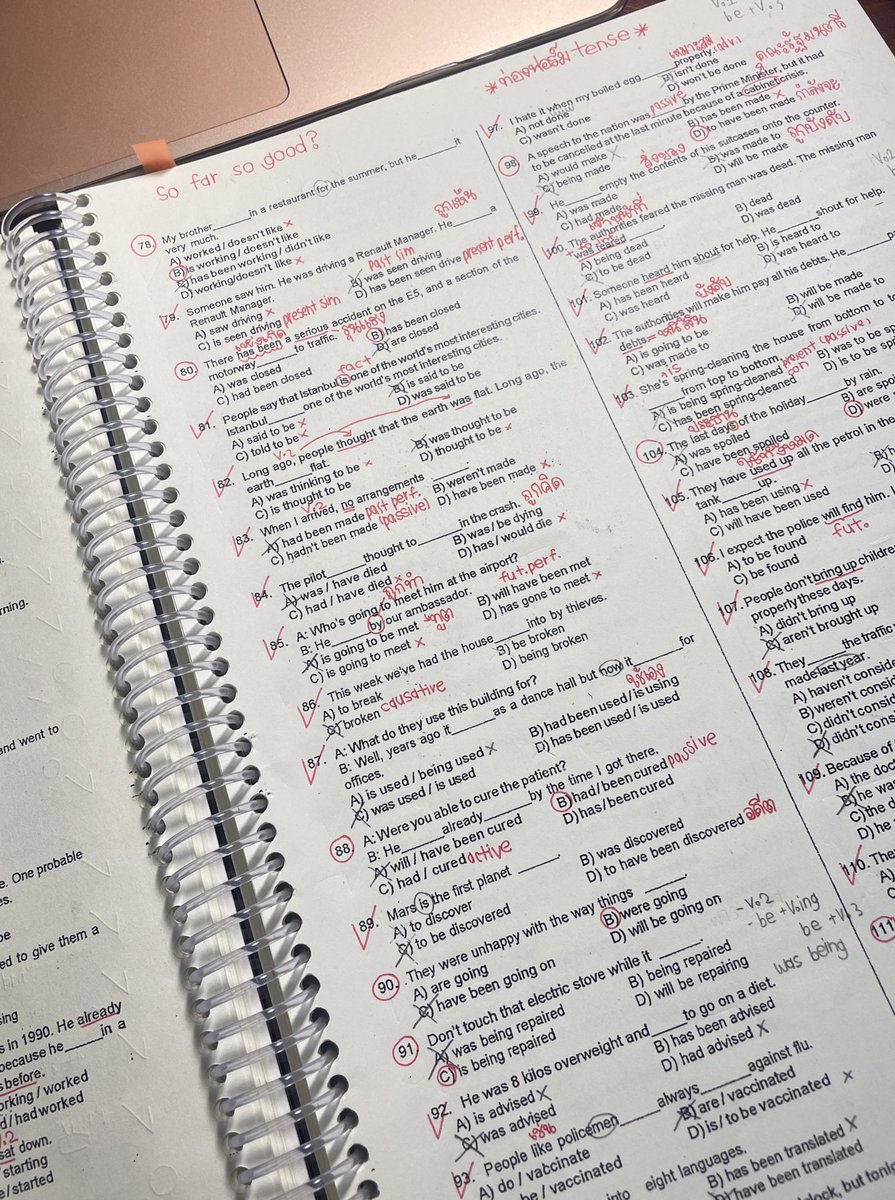 So far so good?
78. My brother______in a restaurant for the summer, but he______it
very much.
A) worked / doesn't like ×
B) is working / doesn't like
C) has been working / didn't like
D) working/doesn't like ×
ถูกเห็น
79. Someone saw him. He was driving a Renault Manager. He______a
Renault Manager.
past sim
A) saw driving ×
B) was seen driving
C) is seen driving present sim
D) has been seen drive present perf.
80. There has been a serious accident on the E5, and a section of the
motorway______to traffic.
A) was closed
B) has been closed
C) had been closed
D) are closed
fact
81. People say that Istanbul is one of the world's most interesting cities.
Istanbul______one of the world's most interesting cities.
A) said to be ×
B) is said to be
C) told to be ×
D) was said to be
v.2
82. Long ago, people thought that the earth was flat. Long ago, the
earth______flat.
A) was thinking to be ×
B) was thought to be
C) is thought to be
D) thought to be ×
v.2
83. When I arrived, no arrangements ______.
A) had been made past perf.
B) weren't made
C) hadn't been made (passive)
D) have been made ×
ถูกคิด
84. The pilot______thought to______in the crash.
A) was / have died
B) was / be dying
C) had / have died ×
D) has / would die ×
85. A: Who's going to meet him at the airport?
B: He______by our ambassador.
ทูต
fut.perf.
A) is going to be met
B) will have been met
C) is going to meet ×
D) has gone to meet ×
86. This week we've had the house______into by thieves.
A) to break
B) be broken
C) broken causative
D) being broken
87. A: What do they use this building for?
B: Well, years ago it______as a dance hall but now it______for
offices.
A) is used / being used ×
B) had been used / is using
C) was used / is used
D) has been used / is used
88 A: Were you able to cure the patient?
B: He______already______by the time I got there.
A) will / have been cured
B) had / been cured passive
C) had / cured active
D) has / been cured
89. Mars is the first planet ______.
A) to discover
B) was discovered
C) to be discovered
D) to have been discovered อดีต
90. They were unhappy with the way things ______
A) are going
B) were going
C) have been going on
D) will be going on
- v.2
- be + v.ing
be + v.3
was being
91 Don't touch that electric stove while it ______.
A) was being repaired
B) being repaired
C) is being repaired
D) will be repairing
92. He was 8 kilos overweight and______to go on a diet.
A) is advised ×
B) has been advised
C) was advised
D) had advised ×
เช่น
93. People like policemen______always______against flu.
A) do / vaccinate
B) are / vaccinated
be / vaccinated
D) is / to be vaccinated ×
into eight languages.
B) has been translated ×
have been translated
*ท่องฟอร์ม tense*
be + v.3
97. I hate it when my boiled egg______properly.
adv.
A) not done
B) isn't done
C) wasn't done
D) won't be done
passive
98 A speech to the nation was______by the Prime Minister, but it had
to be cancelled at the last minute because of a cabinet crisis.
A) would make ×
B) has been made ×
C) being made
D) to have been made กำลังจะ
99. He______empty the contents of his suitcases onto the counter.
A) was made
B) was made to ถูกบังคับ
C) had made
D) will be made
100. The authorities feared the missing man was dead. The missing man
was feared______
A) being dead
B) dead
C) to be dead
D) was dead
101. Someone heard him shout for help. He______shout for help.
A) has been heard
B) is heard to
C) was heard
D) was heard to
บังคับ
102. The authorities will make him pay all his debts. He______
debts=
A) is going to be
B) will be made
C) was made to
D) will be made to
is
103. She's spring-cleaning the house from bottom to
______from top to bottom.
present con (passive)
A) is being spring-cleaned
B) was to be
C) has been spring-cleaned
D) is to be
104. The last days of the holiday______by rain.
A) was spoiled
B) are
C) have been spoiled
D) were
105. They have used up all the petrol in the
tank______up.
A) has been using ×
C) will have been used
106. I expect the police will find him
fut.
A) to be found
C) be found
107. People don't bring up
properly these days.
A) didn't bring up
C) aren't brought up
108. They______the traffic
made last year.
A) haven't
B) weren't
C) didn't
D) didn't
109. Because of
A) the
B) he was
C) the
D) he
110. They
A)
C)
111
rning.
and went to
e. One probable
ed to give them a
s in 1990. He already
because he______in a
before.
orking / worked
d / had worked
v.2
sat down.
/ starting
e / started